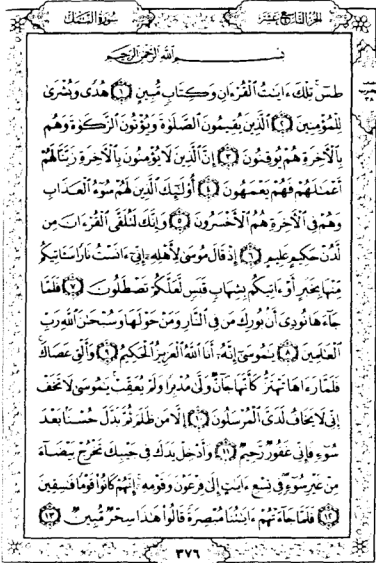 الجزء التاسع عشر سورة النمل
بسم الله الرحمن الرحيم
طسٓ تِلْكَ ءَايَٰتُ ٱلْقُرْءَانِ وَكِتَابٍ مُّبِينٍ ١ هُدًى وَبُشْرَىٰ
لِلْمُؤْمِنِينَ ٢ ٱلَّذِينَ يُقِيمُونَ ٱلصَّلَوٰةَ وَيُؤْتُونَ ٱلزَّكَوٰةَ وَهُم
بِٱلْءَاخِرَةِ هُمْ يُوقِنُونَ ٣ إِنَّ ٱلَّذِينَ لَا يُؤْمِنُونَ بِٱلْءَاخِرَةِ زَيَّنَّا لَهُمْ
أَعْمَٰلَهُمْ فَهُمْ يَعْمَهُونَ ٤ أُو۟لَٰٓئِكَ ٱلَّذِينَ لَهُمْ سُوٓءُ ٱلْعَذَابِ
وَهُمْ فِى ٱلْءَاخِرَةِ هُمُ ٱلْأَخْسَرُونَ ٥ وَإِنَّكَ لَتُلَقَّى ٱلْقُرْءَانَ مِن
لَّدُنْ حَكِيمٍ عَلِيمٍ ٦ إِذْ قَالَ مُوسَىٰ لِأَهْلِهِۦٓ إِنِّىٓ ءَانَسْتُ نَارًا سَـَٔاتِيكُم
مِّنْهَا بِخَبَرٍ أَوْ ءَاتِيكُم بِشِهَابٍ قَبَسٍ لَّعَلَّكُمْ تَصْطَلُونَ ٧ فَلَمَّا
جَآءَهَا نُودِىَ أَنۢ بُورِكَ مَن فِى ٱلنَّارِ وَمَنْ حَوْلَهَا وَسُبْحَٰنَ ٱللَّهِ رَبِّ
ٱلْعَٰلَمِينَ ٨ يَٰمُوسَىٰٓ إِنَّهُۥٓ أَنَا ٱللَّهُ ٱلْعَزِيزُ ٱلْحَكِيمُ ٩ وَأَلْقِ عَصَاكَ
فَلَمَّا رَءَاهَا تَهْتَزُّ كَأَنَّهَا جَآنٌّ وَلَّىٰ مُدْبِرًا وَلَمْ يُعَقِّبْ يَٰمُوسَىٰ لَا تَخَفْ
إِنِّى لَا يَخَافُ لَدَىَّ ٱلْمُرْسَلُونَ ١٠ إِلَّا مَن ظَلَمَ ثُمَّ بَدَّلَ حُسْنًۢا بَعْدَ
سُوٓءٍ فَإِنِّى غَفُورٌ رَّحِيمٌ ١١ وَأَدْخِلْ يَدَكَ فِى جَيْبِكَ تَخْرُجْ بَيْضَآءَ
مِنْ غَيْرِ سُوٓءٍ فِى تِسْعِ ءَايَٰتٍ إِلَىٰ فِرْعَوْنَ وَقَوْمِهِۦٓ إِنَّهُمْ كَانُوا۟ قَوْمًا فَٰسِقِينَ
١٢ فَلَمَّا جَآءَتْهُمْ ءَايَٰتُنَا مُبْصِرَةً قَالُوا۟ هَٰذَا سِحْرٌ مُّبِينٌ ١٣
٣٧٦